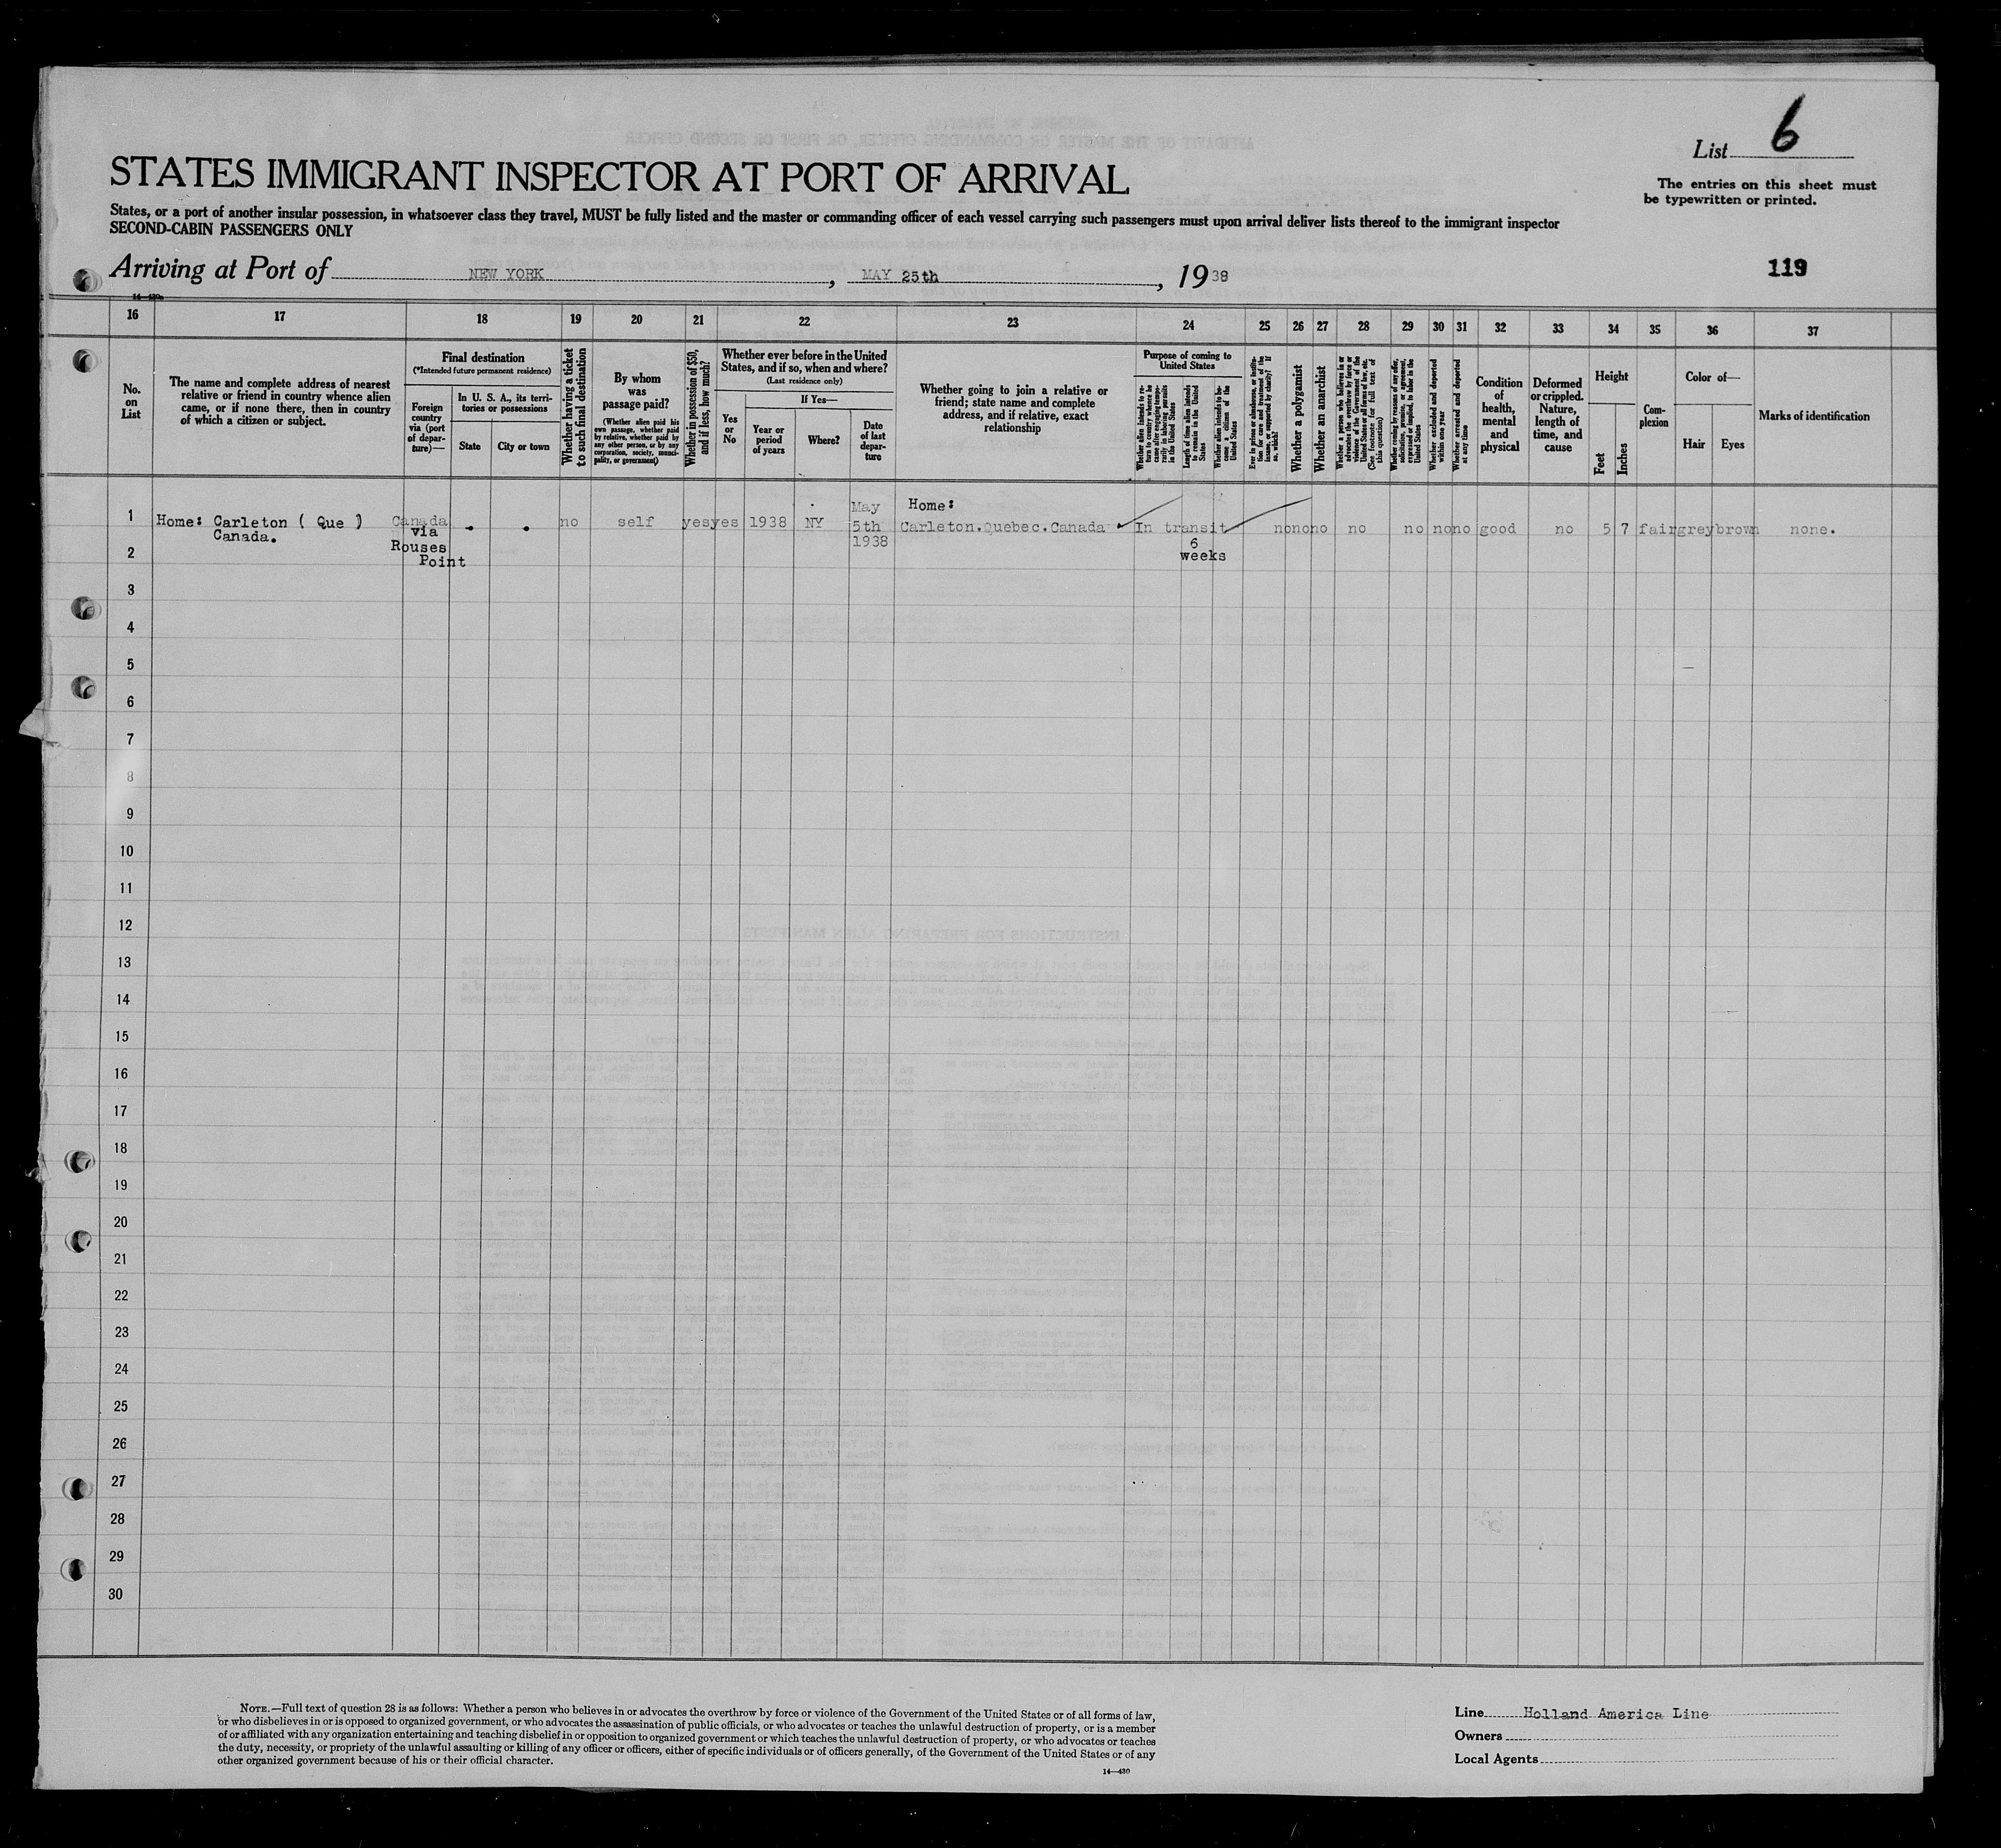 List 6
STATES IMMIGRANT INSPECTOR AT PORT OF ARRIVAL
The entries on this sheet must
be typewritten or printed.
States, or a port of another insular possession, in whatsoever class they travel, MUST be fully listed and the master or commanding officer of each vessel carrying such passengers must upon arrival deliver lists thereof to the immigrant inspector
SECOND-CABIN PASSENGERS ONLY
Arriving at Port of NEW YORK, MAY 25th, 1938
119
14—430a
16 17 18 19 20 21 22 23 24 25 26 27 28 29 30 31 32 33 34 35 36 37
No.
on
List
The name and complete address of nearest
relative or friend in country whence alien
came, or if none there, then in country
of which a citizen or subject.
Final destination
(*Intended future permanent residence)
Foreign
country
via (port
of depar-
ture)—
In U. S. A., its terri-
tories or possessions
State
City or town
Whether having a ticket
to such final destination
By whom
was
passage paid?
(Whether alien paid his
own passage, whether paid
by relative, whether paid by
any other person, or by any
corporation, society, munici-
pality, or government)
Whether in possession of $50,
and if less, how much?
Whether ever before in the United
States, and if so, when and where?
(Last residence only)
Yes
or
No
If Yes—
Year or
period
of years
Where?
Date
of last
depar-
ture
Whether going to join a relative or
friend; state name and complete
address, and if relative, exact
relationship
Purpose of coming to
United States
Whether alien intends to re-
turn to country whence he
came after engaging tempo-
rarily in laboring pursuits
in the United States
Length of time alien intends
to remain in the United
States
Whether alien intends to be-
come a citizen of the
United States
Ever in prison or almshouse, or institu-
tion for care and treatment of the
insane, or supported by charity? If
so, which?
Whether a polygamist
Whether an anarchist
Whether a person who believes in or
advocates the overthrow by force or
violence of the Government of the
United States or all forms of law, etc.
(See footnote for full text of
this question)
Whether coming by reasons of any offer,
solicitation, promise, or agreement,
expressed or implied, to labor in the
United States
Whether excluded and deported
within one year
Whether arrested and deported
at any time
Condition
of
health,
mental
and
physical
Deformed
or crippled.
Nature,
length of
time, and
cause
Height
Feet
Inches
Com-
plexion
Color of—
Hair
Eyes
Marks of identification
1 Home: Carleton ( Que ) Canada . . no self yes yes 1938 NY May Home:
Canada. via 5th Carleton.Quebec.Canada In transit no no no no no no no good no 5 7 fair grey brown none.
2 Rouses 1938 6
Point weeks
3
4
5
6
7
8
9
10
11
12
13
14
15
16
17
18
19
20
21
22
23
24
25
26
27
28
29
30
NOTE.—Full text of question 28 is as follows: Whether a person who believes in or advocates the overthrow by force or violence of the Government of the United States or of all forms of law,
or who disbelieves in or is opposed to organized government, or who advocates the assassination of public officials, or who advocates or teaches the unlawful destruction of property, or is a member
of or affiliated with any organization entertaining and teaching disbelief in or opposition to organized government or which teaches the unlawful destruction of property, or who advocates or teaches
the duty, necessity, or propriety of the unlawful assaulting or killing of any officer or officers, either of specific individuals or of officers generally, of the Government of the United States or of any
other organized government because of his or their official character.
14—430
Line Holland America Line
Owners
Local Agents